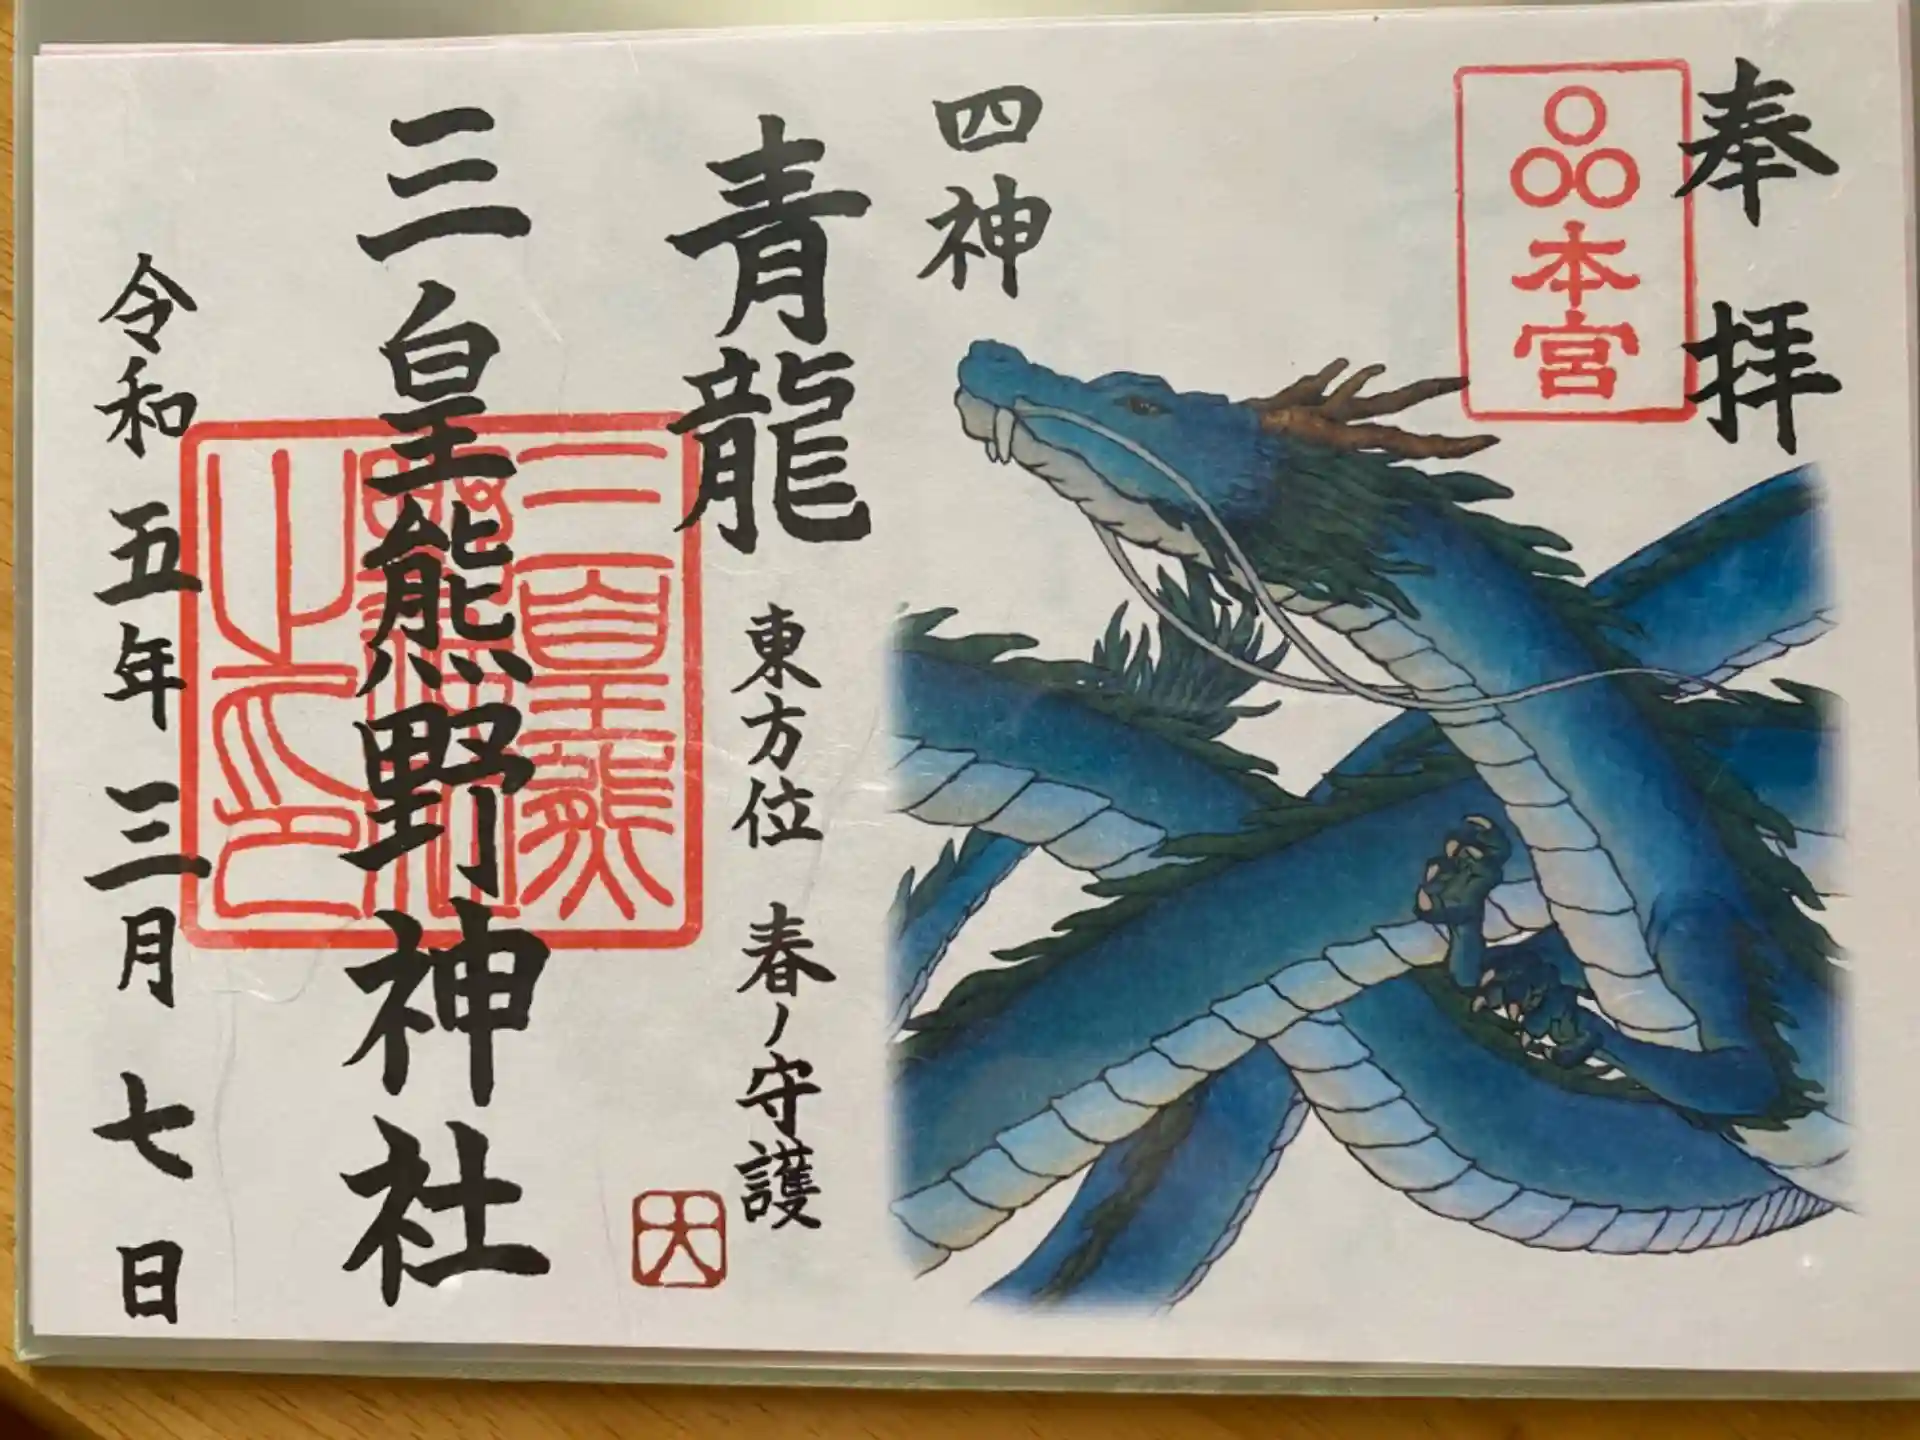 奉拝
本宮
四神
青龍
東方位 春ノ守護
三皇熊野神社
三皇熊
之印
令和五年三月七日